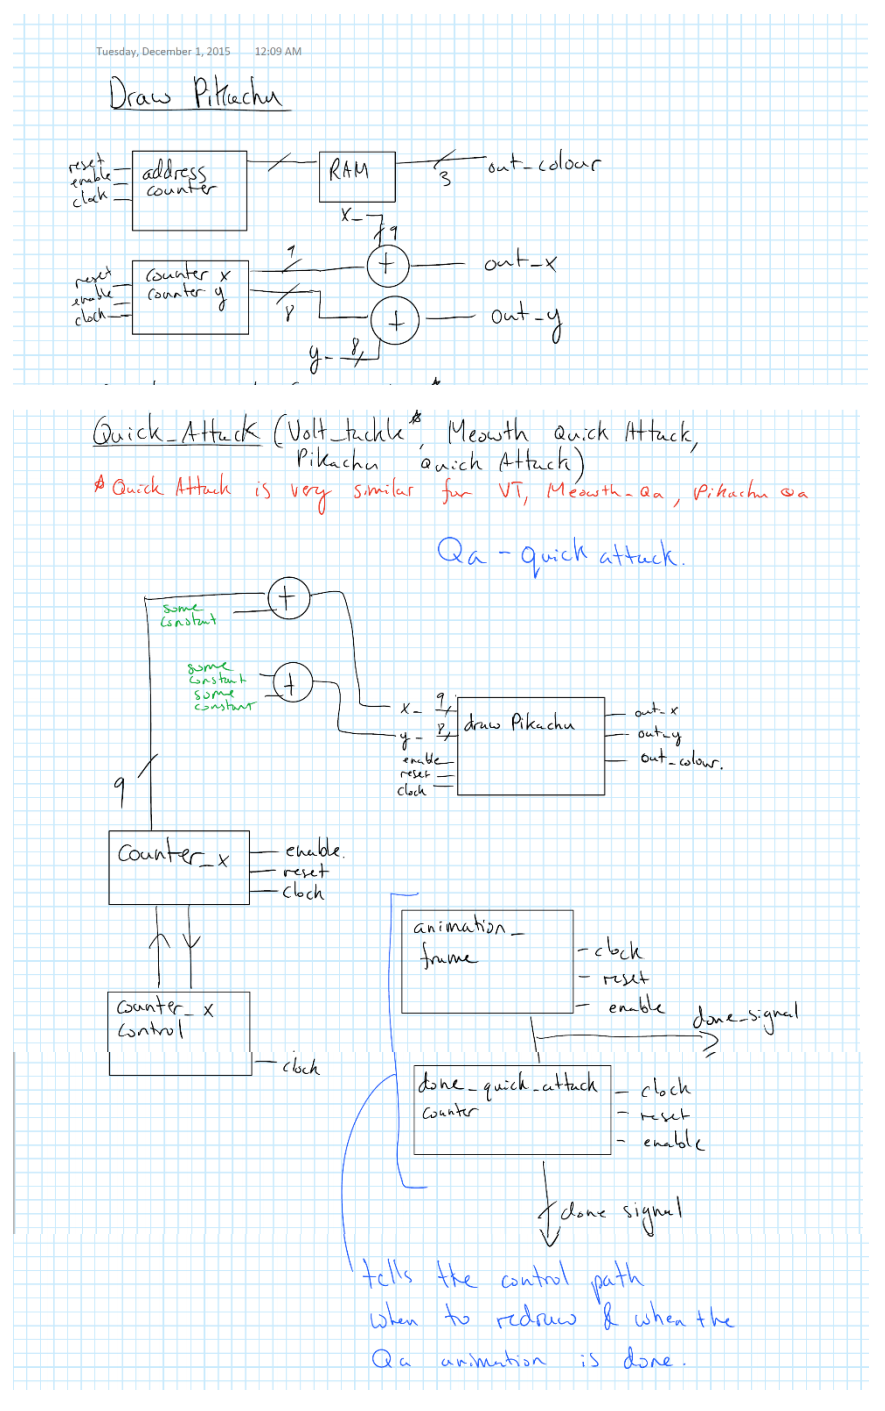 Tuesday, December 1, 2015 12:09 AM
Draw Pikachu
reset
enable
clock
address
counter
RAM
3
out_colour
x_
9
reset
enable
clock
counter x
counter y
9
8
+
out_x
+
out_y
y_ 8
Quick_Attack (Volt_tackle*, Meowth Quick Attack,
Pikachu Quick Attack)
* Quick Attack is very similar for VT, Meowth_Qa, Pikachu Qa
Qa - quick attack.
some
constant
+
some
constant
some
constant
+
x_ 9
y_ 8
enable
reset
clock
draw Pikachu
out_x
out_y
out_colour.
9
Counter_x
enable.
reset
clock
counter_x
control
clock
animation_
frame
clock
reset
enable
done_signal
done_quick_attack
counter
clock
reset
enable
done signal
tells the control path
when to redraw & when the
Qa animation is done.